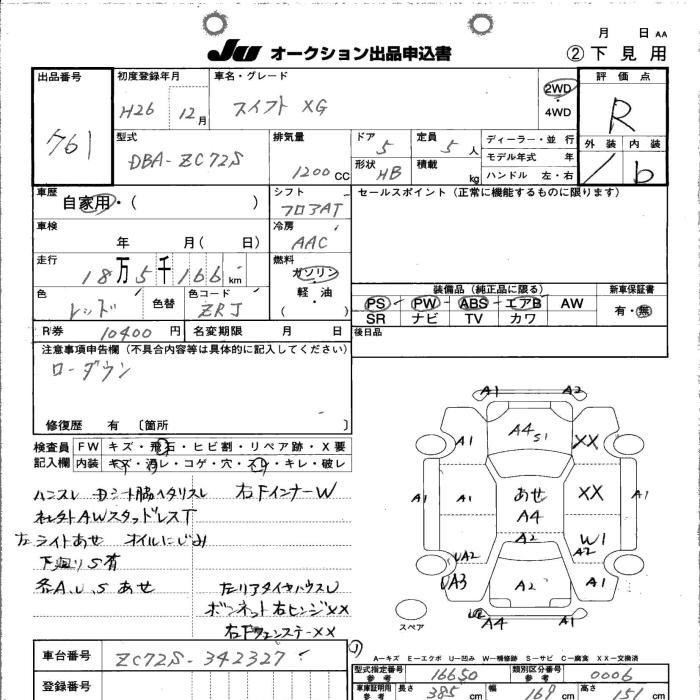 月 日 AA
JU オークション出品申込書 ②下見用
出品番号 761
初度登録年月 H26 12月
車名・グレード スイフト XG
2WD 4WD
評価点 R
外装 内装 b
型式 DBA-ZC72S
排気量 1200cc
ドア 5
形状 HB
定員 5人
積載 kg
ディーラー・並行
モデル年式 年
ハンドル 左・右
車歴 自家用・( )
シフト フロアAT
セールスポイント (正常に機能するものに限ります)
車検 年 月( 日)
冷房 AAC
走行 18万5千166km
燃料 ガソリン 軽・油 ( )
色 レッド 色替
色コード ZRJ
装備品 (純正品に限る)
PS PW ABS エアB AW
SR ナビ TV カワ
新車保証書 有・無
R券 10400円
名変期限 月 日
後日品
注意事項申告欄 (不具合内容等は具体的に記入してください)
ローダウン
修復歴 有 〔箇所 〕
検査員記入欄
FW キズ・飛石・ヒビ割・リペア跡・X要
内装 キズ・汚レ・コゲ・穴・スレ・キレ・破レ
ハンスレ Dシート脇ヘタリスレ 右Fインナー W
社外AWスタッドレスT
左ライトあせ オイルにじみ
下廻りS有
各A,U,Sあせ 左リアタイヤハウスU
ボンネット右ヒンジXX
右Fフェンステー XX
A1 A2
A1 A4 S1 XX
A1 A1 あせ A4 XX A1
A2 W1 A2
UA2 UA3 A2 A1
U2 A4 A1
スペア
A-キズ E-エクボ U-凹み W-補修跡 S-サビ C-腐食 XX-交換済
車台番号 ZC72S-342327
登録番号
型式指定番号 参考 16650
類別区分番号 参考 0006
車庫証明用 参考 長さ 385cm 幅 169cm 高さ 151cm